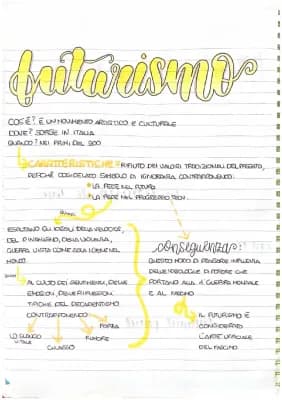 futurismo
COS'È? È UN MOVIMENTO ARTISTICO E CULTURALE
DOVE? SORGE IN ITALIA
QUANDO? NEI PRIMI DEL 900
CARATTERISTICHE RIFIUTO DEI VALORI TRADIZIONALI DEL PASSATO,
PERCHÉ CONSIDERATO SIMBOLO DI IGNORANZA, CONTRAPPONENDO:
LA FEDE NEL FUTURO
LA FEDE NEL PROGRESSO TECN.
ESALTANO GLI IDEALI DELLA VELOCITÀ,
DEL DINAMISMO, DELLA VIOLENZA,
GUERRA VISTA COME SOLA IGIENE NEL
MONDO
AL CULTO DEI SENTIMENTI, DELLE
EMOZIONI, DELLE RIFLESSIONI
TIPICHE DEL DECADENTISMO
CONTRAPPONGONO
LO SLANCIO
VITALE
CORAGGIO
RUMORE
FORZA
conseguenza:
QUESTO MODO DI PENSARE INFLUENZA
DELLE IDEOLOGIE DI POTERE CHE
PORTANO ALLA 1° GUERRA MONDIALE
E AL FASCISMO
IL FUTURISMO È
CONSIDERATO
L'ARTE UFFICIALE
DEL FASCISMO